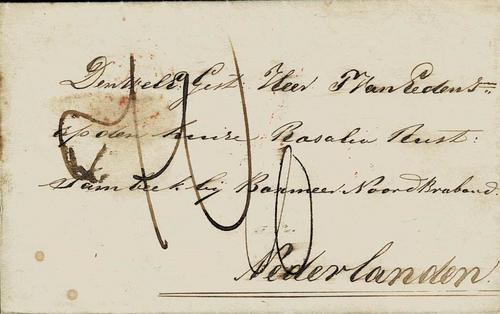 Den Wel Ed. Gest. Heer T. Van Eeden
op den huize Rosalia Rust:
Sambeek bij Boxmeer Noord Braband.
Nederlanden.